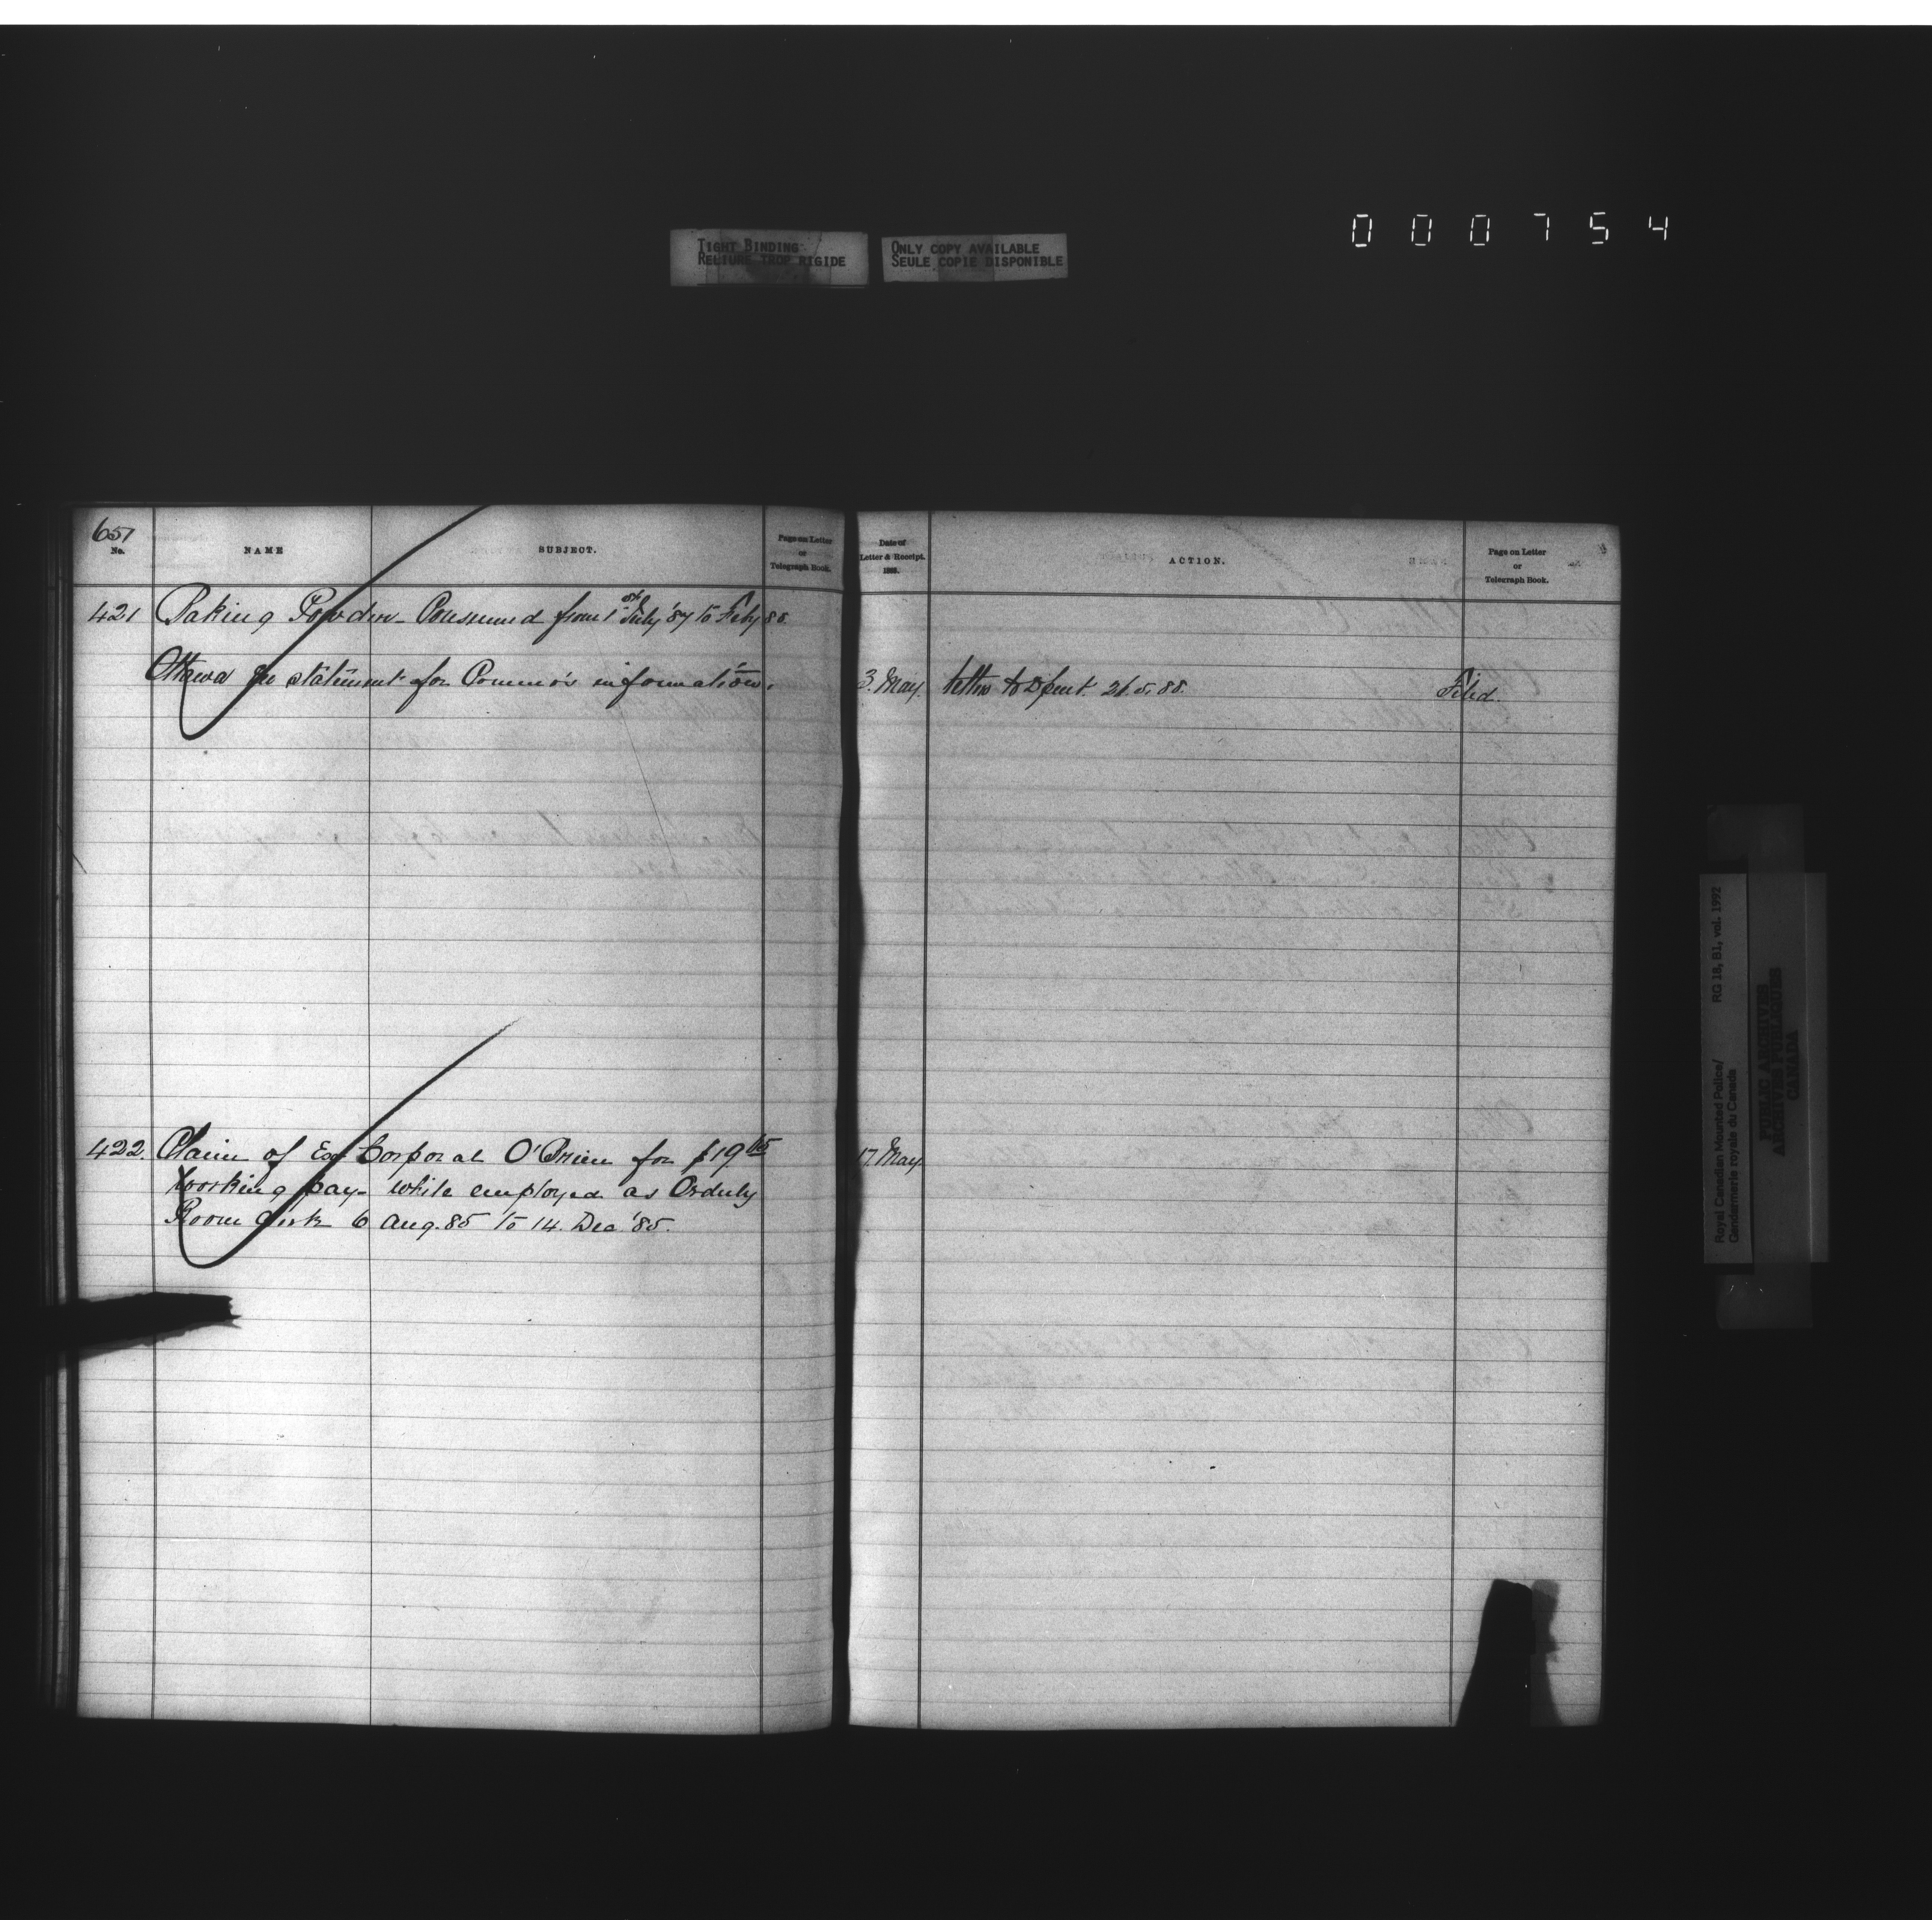 000754
TIGHT BINDING
RELIURE TROP RIGIDE
ONLY COPY AVAILABLE
SEULE COPIE DISPONIBLE
651
No.
NAME
SUBJECT.
Page on Letter
or
Telegraph Book.
Date of
Letter & Receipt.
188.
ACTION.
Page on Letter
or
Telegraph Book.
421 Baking Powder - Consumed from 1st July '87 to Feby 88.
Ottawa for statement for Commr's information. 3. May. letter to Dpent. 21.5.88. Filed.
422. Claim of Ex Corporal O'Brien for $19 65 17. May.
working pay - while employed as Orderly
Room Clerk 6 Aug. 85 to 14. Dec '85.
Royal Canadian Mounted Police/ RG 18, B1, vol. 1992
Gendarmerie royale du Canada
PUBLIC ARCHIVES
ARCHIVES PUBLIQUES
CANADA